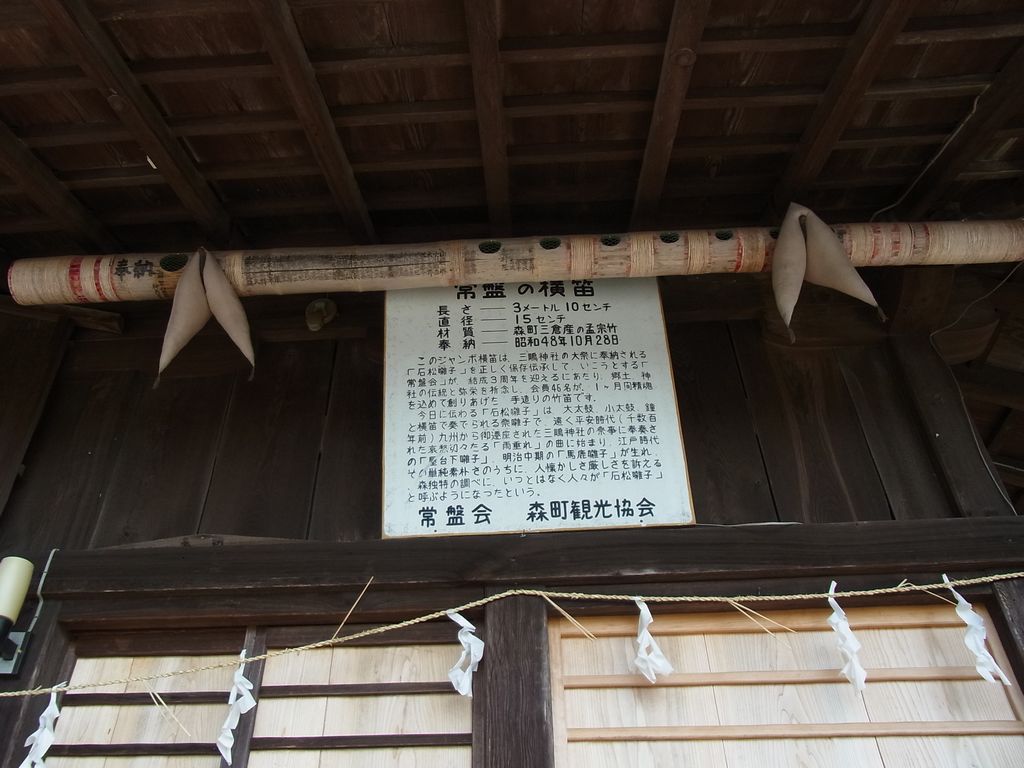 奉納
常盤の横笛
長さ――3メートル10センチ
直径――15センチ
材質――森町三倉産の孟宗竹
奉納――昭和48年10月28日
このジャンボ横笛は、三嶋神社の大祭に奉納される
「石松囃子」を正しく保存伝承して、いこうとする「
常盤会」が、結成3周年を迎えるにあたり、郷土、神
社の伝統と弥栄を祈念し、会員46名が、1ヶ月間精魂
を込めて創りあげた、手造りの竹笛です。
今日に伝わる「石松囃子」は、大太鼓、小太鼓、鐘
と横笛で奏でられる祭囃子で、遠く平安時代(千数百
年前)九州から御遷座された三嶋神社の祭事に奉奏さ
れた哀愁切々たる「雨垂れ」の曲に始まり、江戸時代
の「屋台下囃子」、明治中期の「馬鹿囃子」が生れ、
その単純素朴さのうちに、人懐かしさ厳しさを訴える
森独特の調べに、いつとはなく人々が「石松囃子」
と呼ぶようになったという。
常盤会 森町観光協会